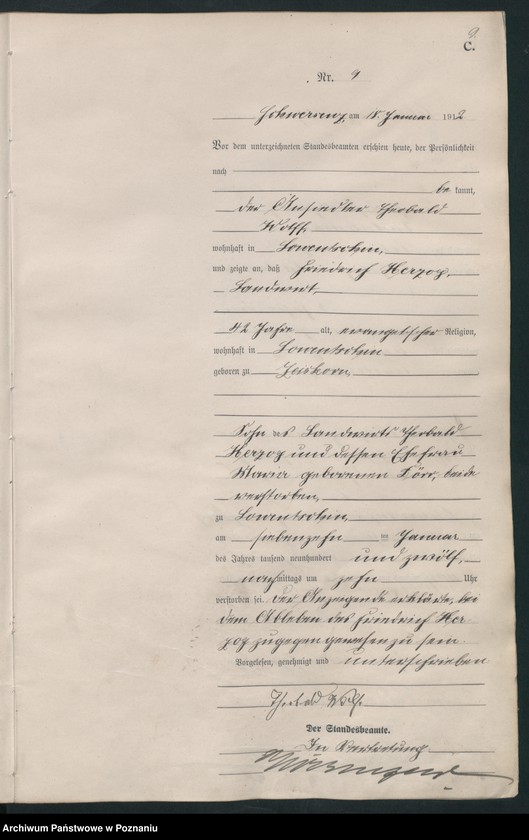 9
C.
Nr. 9
Schwersenz, am 18. Januar 1912
Vor dem unterzeichneten Standesbeamten erschien heute, der Persönlichkeit
nach
be kannt,
der Ansiedler Theobald
Wolff,
wohnhaft in Lowentschin,
und zeigte an, daß Friedrich Herzog,
Landwirt,
42 Jahre alt, evangelischer Religion,
wohnhaft in Lowentschin
geboren zu
Sohn des Landwirts Theobald
Herzog und dessen Ehefrau
Maria geborenen Dörr, beide
verstorben,
zu Lowentschin,
am siebenzehn ten Januar
des Jahres tausend neunhundert und zwölf,
nachmittags um zehn Uhr
verstorben sei. Der Anzeigende erklärte, bei
dem Ableben des Friedrich Her-
zog zugegen gewesen zu sein.
Vorgelesen, genehmigt und unterschrieben
Theobald Wolff.
Der Standesbeamte.
In Vertretung
Archiwum Państwowe w Poznaniu